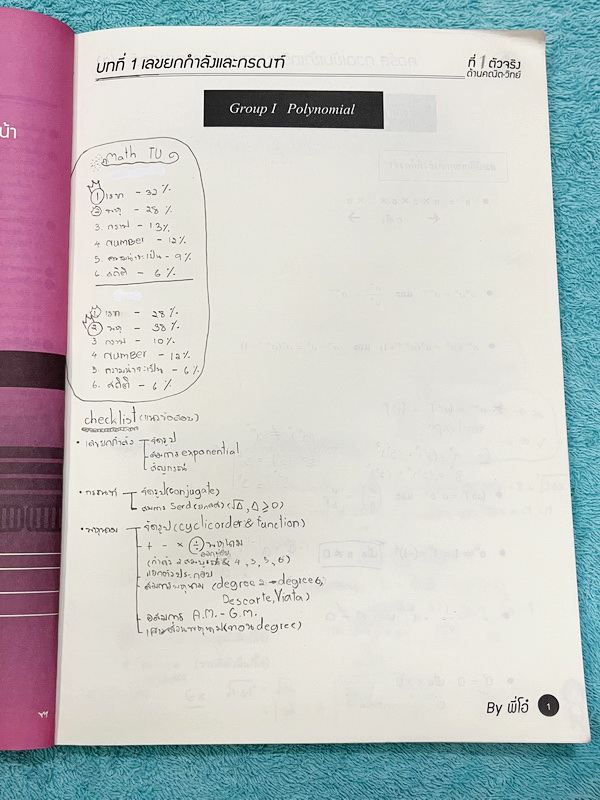 น้า
บทที่ 1 เลขยกกำลังและกรณฑ์
ที่ 1 ตัวจริง
ด้านคณิต-วิทย์
Group I Polynomial
Math TU
1 เรขา - 32 %
2 พหุ - 28 %
3. กราฟ - 13 %
4. Number - 12 %
5. ความน่าจะเป็น - 9 %
6. สถิติ - 6 %
1 เรขา - 28 %
2 พหุ - 38 %
3 กราฟ - 10 %
4 Number - 12 %
5 ความน่าจะเป็น - 6 %
6. สถิติ - 6 %
checklist
• เลขยกกำลัง จัดรูป
สมการ exponential
จัดรูป (conjugate)
(√Δ, Δ ≥ 0)
• พหุนาม จัดรูป (cyclic order & function)
+ - × ÷ พหุนาม
แยกตัวประกอบ
สมการพหุนาม (degree 2 → degree 6,
Descarte, Viata)
อสมการ A.M. - G.M.
By พี่โอ๋ 1